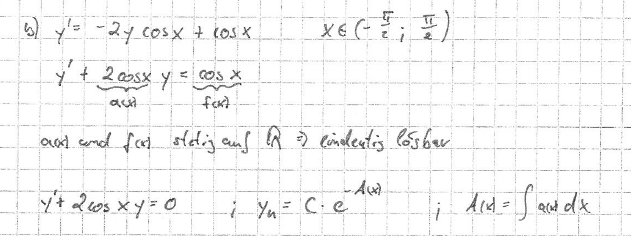 b) y' = -2y cosx + cosx x ∈ (-π/2 ; π/2)
y' + 2cosx y = cos x
a(x) f(x)
a(x) und f(x) stetig auf ℝ ⇒ eindeutig lösbar
y' + 2cos x y = 0 ; y_h = C · e^{-A(x)} ; A(x) = ∫ a(x) dx